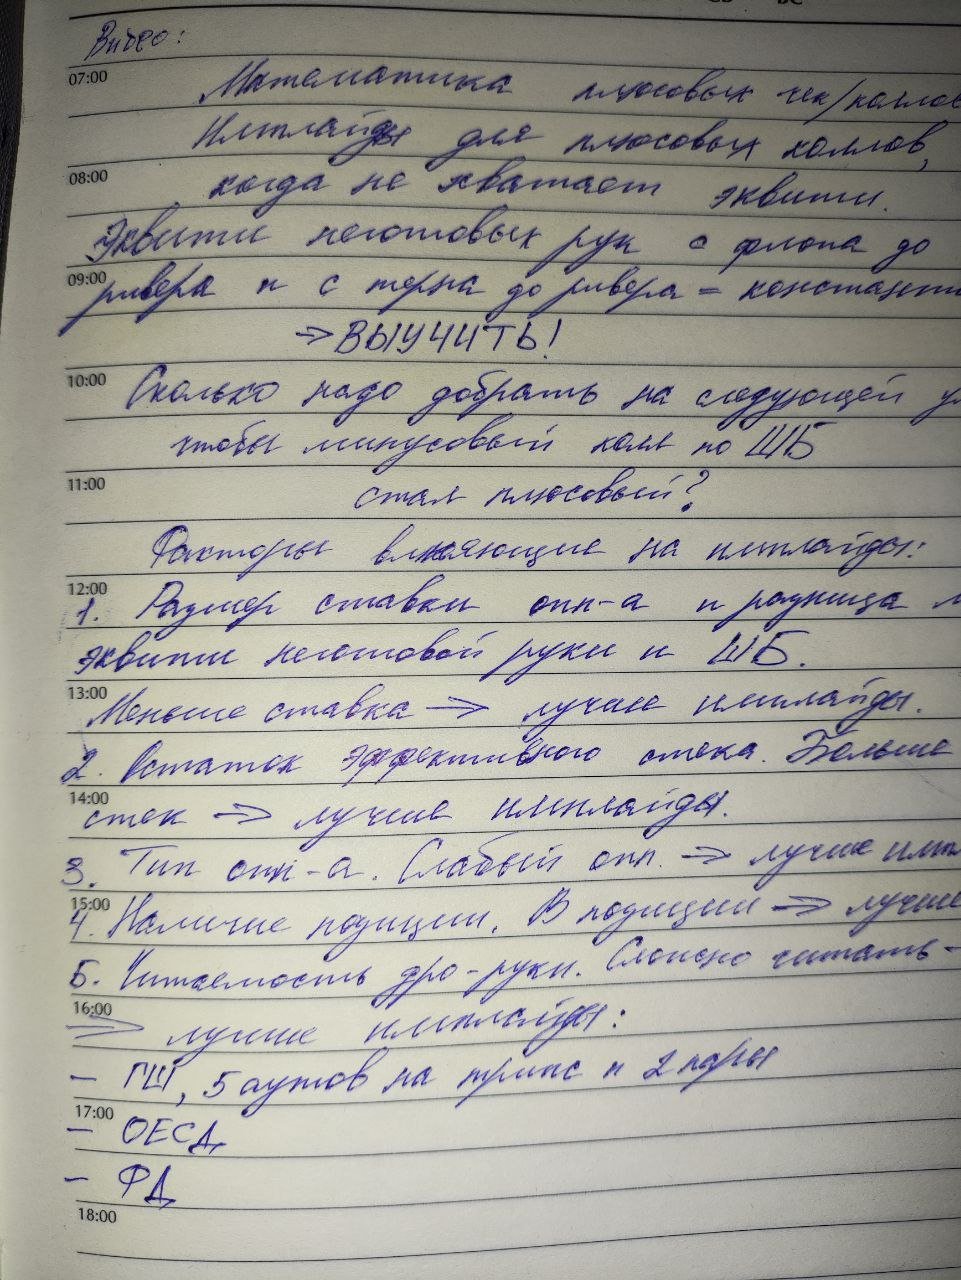 Видео:
07:00
Математика плюсовых чек/коллов
Имплайды для плюсовых коллов,
08:00
когда не хватает эквити.
Эквити неготовых рук с флопа до
09:00
ривера и с терна до ривера = константы
→ ВЫУЧИТЬ!
10:00
Сколько надо добрать на следующей ул
чтобы минусовый колл по ШБ
11:00
стал плюсовый?
Факторы влияющие на имплайды:
12:00
1. Размер ставки опп-а и разница м
эквити неготовой руки и ШБ.
13:00
Меньше ставка → лучше имплайды.
2. Остаток эффективного стека. Больше
14:00
стек → лучше имплайды.
3. Тип опп-а. Слабый опп. → лучше импл
15:00
4. Наличие позиции. В позиции → лучше
5. Читаемость дро-руки. Сложно читать -
16:00
→ лучше имплайды:
- ГШ, 5 аутов на трипс и 2 пары
17:00
- ОЕСД
- ФД
18:00